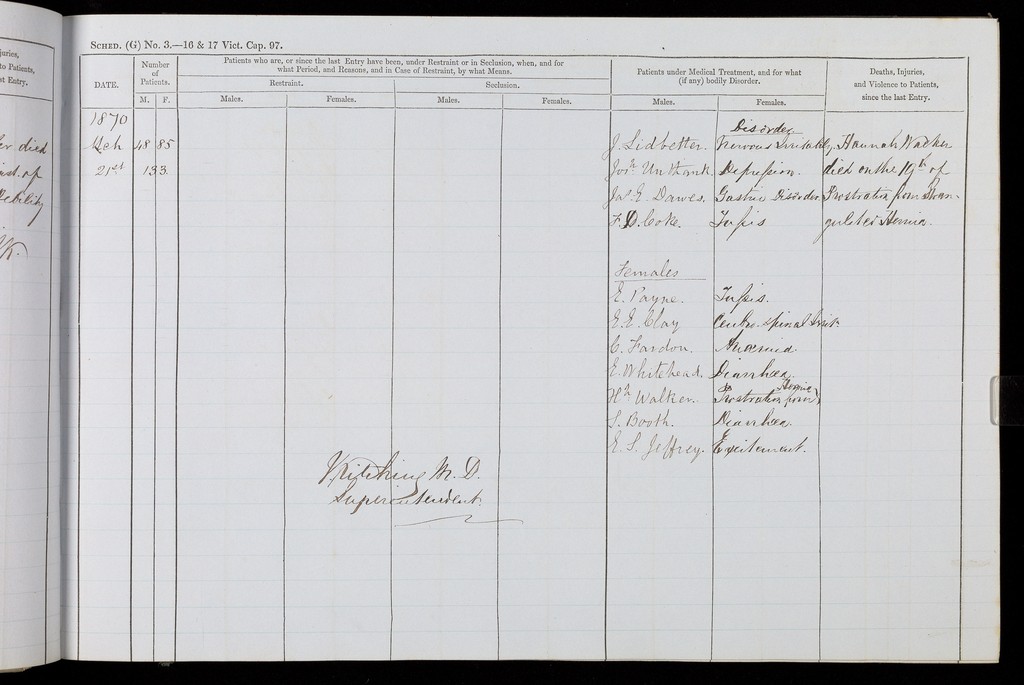 juries,
to Patients,
st Entry.
er died
inst. of
Debility
SCHED. (G) No. 3.—16 & 17 Vict. Cap. 97.
DATE.
Number of Patients.
M. F.
Patients who are, or since the last Entry have been, under Restraint or in Seclusion, when, and for
what Period, and Reasons, and in Case of Restraint, by what Means.
Restraint. Seclusion.
Males. Females. Males. Females.
Patients under Medical Treatment, and for what
(if any) bodily Disorder.
Males. Females.
Deaths, Injuries,
and Violence to Patients,
since the last Entry.
1870
Disorder
Mch 48 85 J. Lidbetter. Nervous Irritability. Hannah Walker
21st 133. Josh. Unthank. Depression. died on the 19th of
Jas. E. Dawes. Gastric Disorder Prostration from Stran-
F. D. Coke. Tussis gulated Hernia.
Females
E. Payne. Tussis.
E. E. Clay Cerebro-spinal Irrit.
C. Fardon. Anaemia.
E. Whitehead. Diarrhœa.
Hh. Walker. Prostration from Hernia
S. Booth. Diarrhœa.
E. S. Jeffrey. Excitement.
Kitching M.D.
Superintendent.